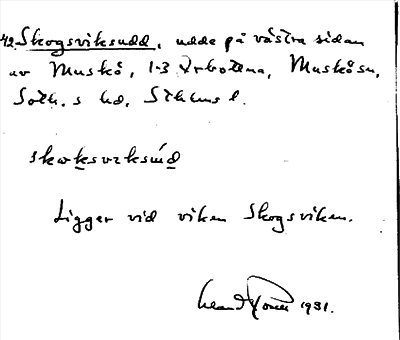 42. Skogsviksudd, udde på västra sidan
av Muskö, 1-3 Arbottna, Muskö sn,
Soth.s hd, Sthlms l.
skoksviksúdd
Ligger vid viken Skogsviken.
1931.